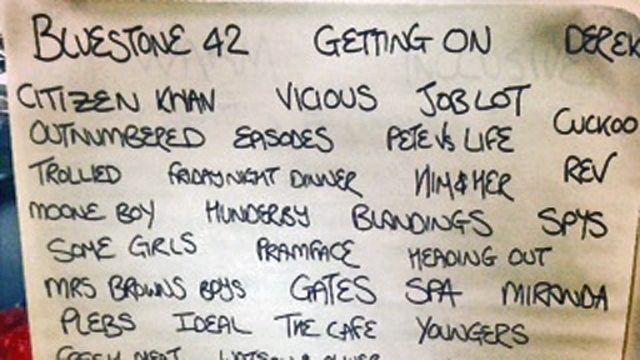 BLUESTONE 42 GETTING ON DEREK
CITIZEN KHAN VICIOUS JOBLOT CUCKOO
OUTNUMBERED EPISODES PETE VS LIFE
TROLLIED FRIDAY NIGHT DINNER HIM & HER REV
MOONE BOY HUNDERBY BLANDINGS SPYS
SOME GIRLS PRAMFACE HEADING OUT
MRS BROWNS BOYS GATES SPA MIRANDA
PLEBS IDEAL THE CAFE YOUNGERS